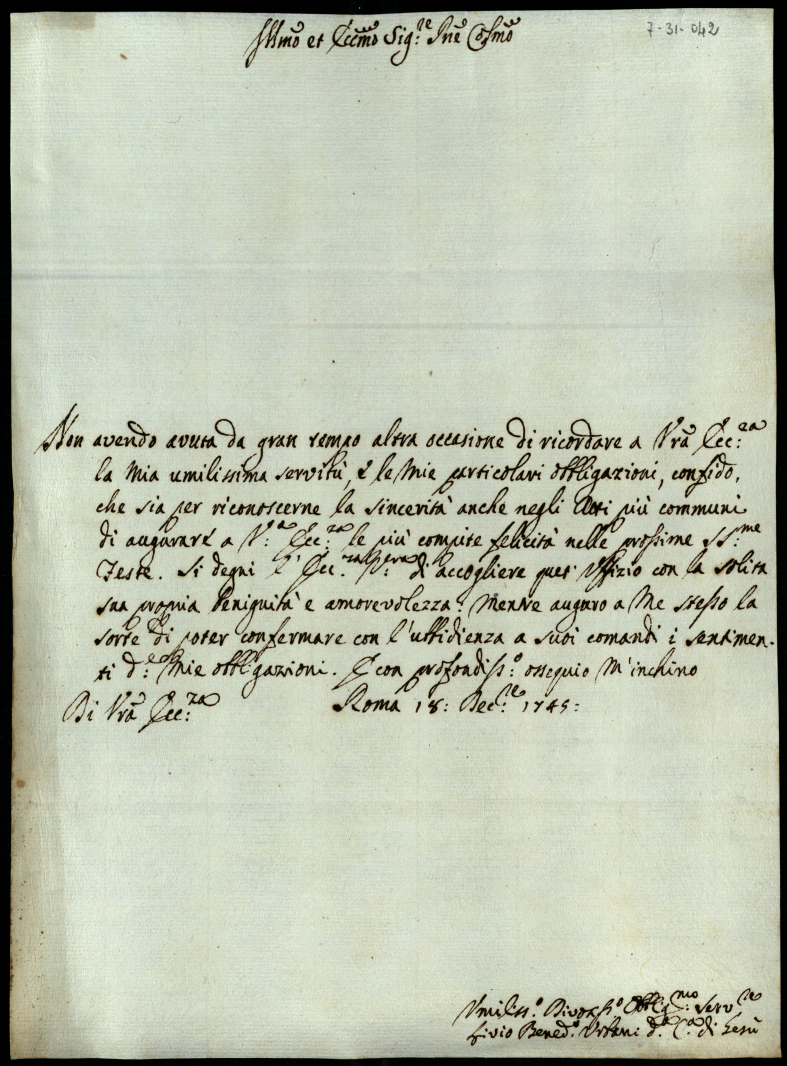 7-31-042
Illmo et Eccmo Sig:re Pne Cosmo
Non avendo avuta da gran tempo altra occasione di ricordare a Vrã Ecc:za
la mia umilissima servitù, e le mie particolari obbligazioni, confido,
che sia per riconoscerne la sincerità anche negli Atti più communi
di augurare a V:a Ecc:za le più compite felicità nelle prossime SS:me
Feste. Si degni l' Ecc:za V:ra di accogliere quest Uffizio con la solita
sua propria benignità e amorevolezza: Mentre auguro a Me stesso la
sorte di poter confermare con l'ubbidienza a suoi comandi i sentimen-
ti d:e Mie obbligazioni. E con profondiss:o ossequio M'inchino
Di Vrã Ecc:za Roma 18: Dec:re 1745:
Umiliss:o Divotiss:o Obblig:mo Serv:re
Livio Bened:o Urbani d:a C:a di Gesù